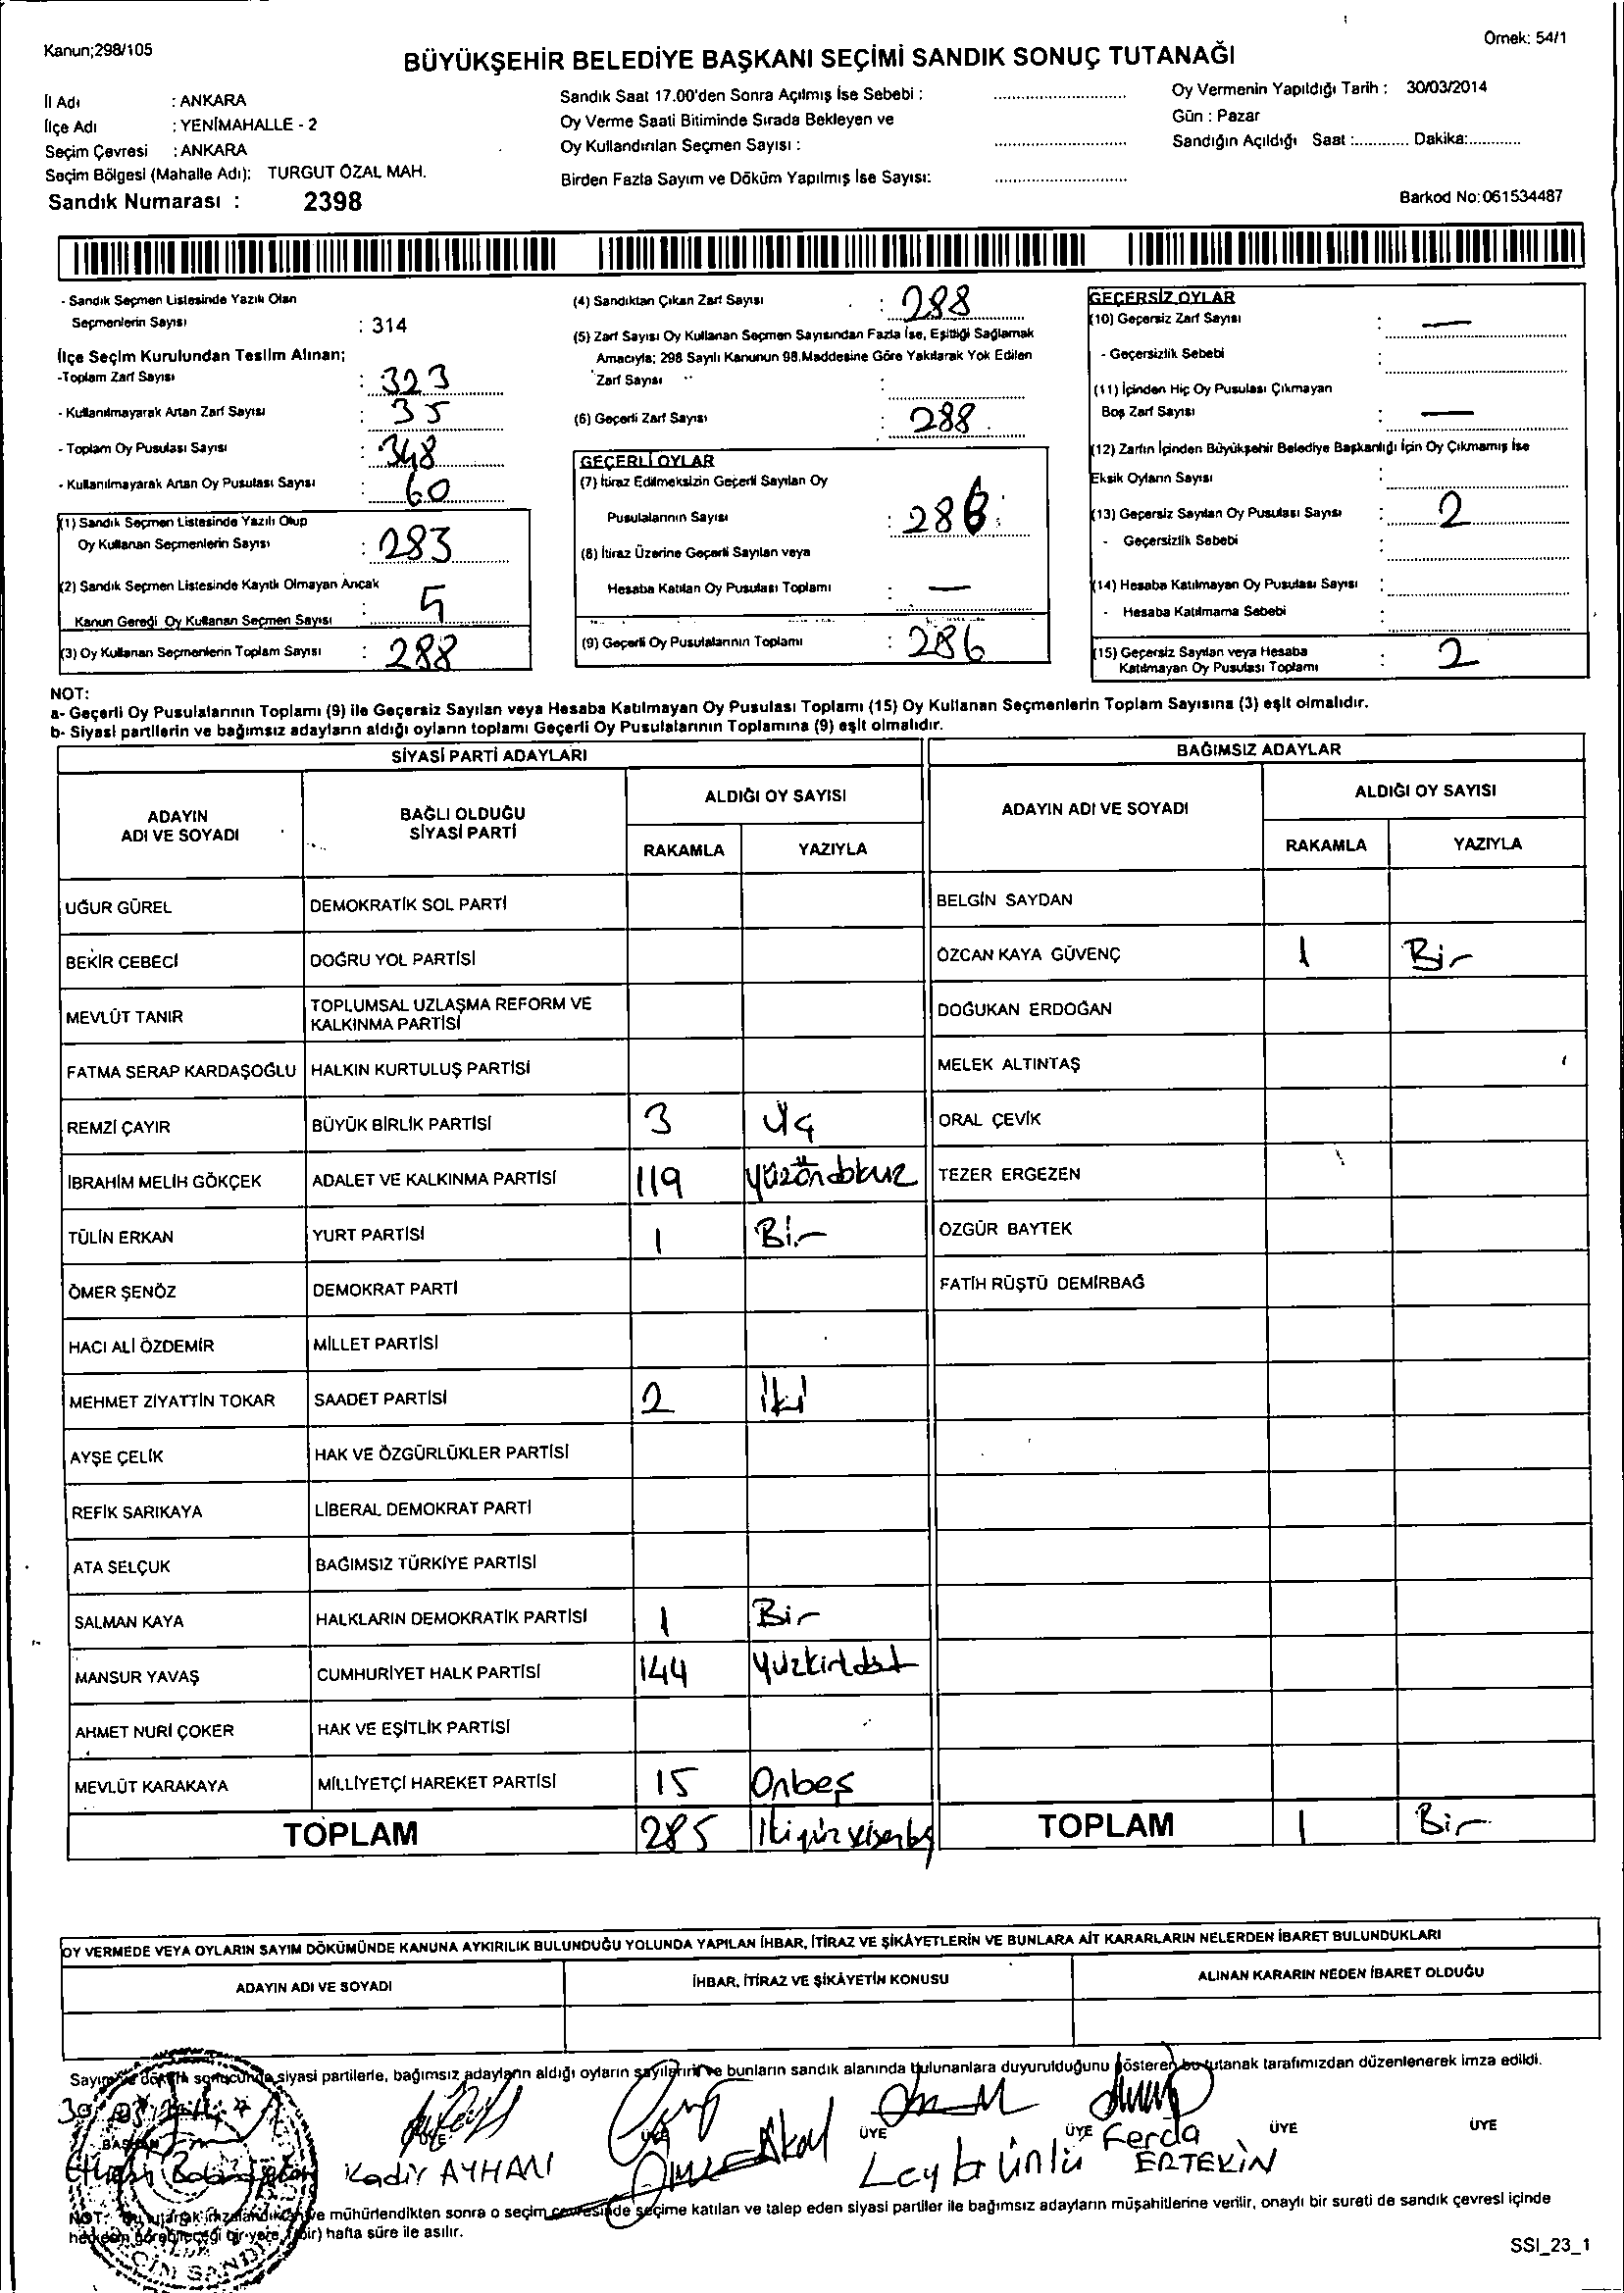 Kanun;298/105
Örnek: 54/1
BÜYÜKŞEHİR BELEDİYE BAŞKANI SEÇİMİ SANDIK SONUÇ TUTANAĞI
İl Adı : ANKARA
İlçe Adı : YENİMAHALLE - 2
Seçim Çevresi : ANKARA
Seçim Bölgesi (Mahalle Adı): TURGUT ÖZAL MAH.
Sandık Numarası : 2398
Sandık Saat 17.00'den Sonra Açılmış İse Sebebi :
Oy Verme Saati Bitiminde Sırada Bekleyen ve
Oy Kullandırılan Seçmen Sayısı :
Birden Fazla Sayım ve Döküm Yapılmış İse Sayısı:
Oy Vermenin Yapıldığı Tarih : 30/03/2014
Gün : Pazar
Sandığın Açıldığı Saat :............ Dakika:............
Barkod No:061534487
- Sandık Seçmen Listesinde Yazılı Olan
Seçmenlerin Sayısı : 314
İlçe Seçim Kurulundan Teslim Alınan;
-Toplam Zarf Sayısı : 323
- Kullanılmayarak Artan Zarf Sayısı : 35
- Toplam Oy Pusulası Sayısı : 348
- Kullanılmayarak Artan Oy Pusulası Sayısı : 60
(1) Sandık Seçmen Listesinde Yazılı Olup
Oy Kullanan Seçmenlerin Sayısı : 283
(2) Sandık Seçmen Listesinde Kayıtlı Olmayan Ancak
Kanun Gereği Oy Kullanan Seçmen Sayısı : 5
(3) Oy Kullanan Seçmenlerin Toplam Sayısı : 288
(4) Sandıktan Çıkan Zarf Sayısı : 288
(5) Zarf Sayısı Oy Kullanan Seçmen Sayısından Fazla İse, Eşitliği Sağlamak
Amacıyla; 298 Sayılı Kanunun 98.Maddesine Göre Yakılarak Yok Edilen
Zarf Sayısı :
(6) Geçerli Zarf Sayısı : 288
GEÇERLİ OYLAR
(7) İtiraz Edilmeksizin Geçerli Sayılan Oy
Pusulalarının Sayısı : 286
(8) İtiraz Üzerine Geçerli Sayılan veya
Hesaba Katılan Oy Pusulası Toplamı : —
(9) Geçerli Oy Pusulalarının Toplamı : 286
GEÇERSİZ OYLAR
(10) Geçersiz Zarf Sayısı : —
- Geçersizlik Sebebi :
(11) İçinden Hiç Oy Pusulası Çıkmayan
Boş Zarf Sayısı : —
(12) Zarfın İçinden Büyükşehir Belediye Başkanlığı İçin Oy Çıkmamış İse
Eksik Oyların Sayısı :
(13) Geçersiz Sayılan Oy Pusulası Sayısı : 2
- Geçersizlik Sebebi :
(14) Hesaba Katılmayan Oy Pusulası Sayısı :
- Hesaba Katılmama Sebebi :
(15) Geçersiz Sayılan veya Hesaba
Katılmayan Oy Pusulası Toplamı : 2
NOT:
a- Geçerli Oy Pusulalarının Toplamı (9) ile Geçersiz Sayılan veya Hesaba Katılmayan Oy Pusulası Toplamı (15) Oy Kullanan Seçmenlerin Toplam Sayısına (3) eşit olmalıdır.
b- Siyasi partilerin ve bağımsız adayların aldığı oyların toplamı Geçerli Oy Pusulalarının Toplamına (9) eşit olmalıdır.
SİYASİ PARTİ ADAYLARI
ADAYIN ADI VE SOYADI
BAĞLI OLDUĞU SİYASİ PARTİ
ALDIĞI OY SAYISI
RAKAMLA YAZIYLA
UĞUR GÜREL DEMOKRATİK SOL PARTİ
BEKİR CEBECİ DOĞRU YOL PARTİSİ
MEVLÜT TANIR TOPLUMSAL UZLAŞMA REFORM VE KALKINMA PARTİSİ
FATMA SERAP KARDAŞOĞLU HALKIN KURTULUŞ PARTİSİ
REMZİ ÇAYIR BÜYÜK BİRLİK PARTİSİ 3 Üç
İBRAHİM MELİH GÖKÇEK ADALET VE KALKINMA PARTİSİ 119 yüzöndokuz
TÜLİN ERKAN YURT PARTİSİ 1 Bir
ÖMER ŞENÖZ DEMOKRAT PARTİ
HACI ALİ ÖZDEMİR MİLLET PARTİSİ
MEHMET ZİYATTİN TOKAR SAADET PARTİSİ 2 iki
AYŞE ÇELİK HAK VE ÖZGÜRLÜKLER PARTİSİ
REFİK SARIKAYA LİBERAL DEMOKRAT PARTİ
ATA SELÇUK BAĞIMSIZ TÜRKİYE PARTİSİ
SALMAN KAYA HALKLARIN DEMOKRATİK PARTİSİ 1 Bir
MANSUR YAVAŞ CUMHURİYET HALK PARTİSİ 144
AHMET NURİ ÇOKER HAK VE EŞİTLİK PARTİSİ
MEVLÜT KARAKAYA MİLLİYETÇİ HAREKET PARTİSİ 15 Onbeş
TOPLAM 285
BAĞIMSIZ ADAYLAR
ADAYIN ADI VE SOYADI
ALDIĞI OY SAYISI
RAKAMLA YAZIYLA
BELGİN SAYDAN
ÖZCAN KAYA GÜVENÇ 1 Bir
DOĞUKAN ERDOĞAN
MELEK ALTINTAŞ
ORAL ÇEVİK
TEZER ERGEZEN
ÖZGÜR BAYTEK
FATİH RÜŞTÜ DEMİRBAĞ
TOPLAM 1 Bir
OY VERMEDE VEYA OYLARIN SAYIM DÖKÜMÜNDE KANUNA AYKIRILIK BULUNDUĞU YOLUNDA YAPILAN İHBAR, İTİRAZ VE ŞİKÂYETLERİN VE BUNLARA AİT KARARLARIN NELERDEN İBARET BULUNDUKLARI
ADAYIN ADI VE SOYADI
İHBAR, İTİRAZ VE ŞİKÂYETİN KONUSU
ALINAN KARARIN NEDEN İBARET OLDUĞU
siyasi partilerle, bağımsız adayların aldığı oyların sayılarını ve bunların sandık alanında bulunanlara duyurulduğunu gösteren bu tutanak tarafımızdan düzenlenerek imza edildi.
BAŞKAN ÜYE ÜYE ÜYE ÜYE ÜYE ÜYE
Kadir AYHAN
Akay
Leyla Ünlü
Ferda ERTEKİN
NOT: ve mühürlendikten sonra o seçim çevresinde seçime katılan ve talep eden siyasi partiler ile bağımsız adayların müşahitlerine verilir, onaylı bir sureti de sandık çevresi içinde
herkesin görebileceği bir yere (bir) hafta süre ile asılır.
SSI_23_1